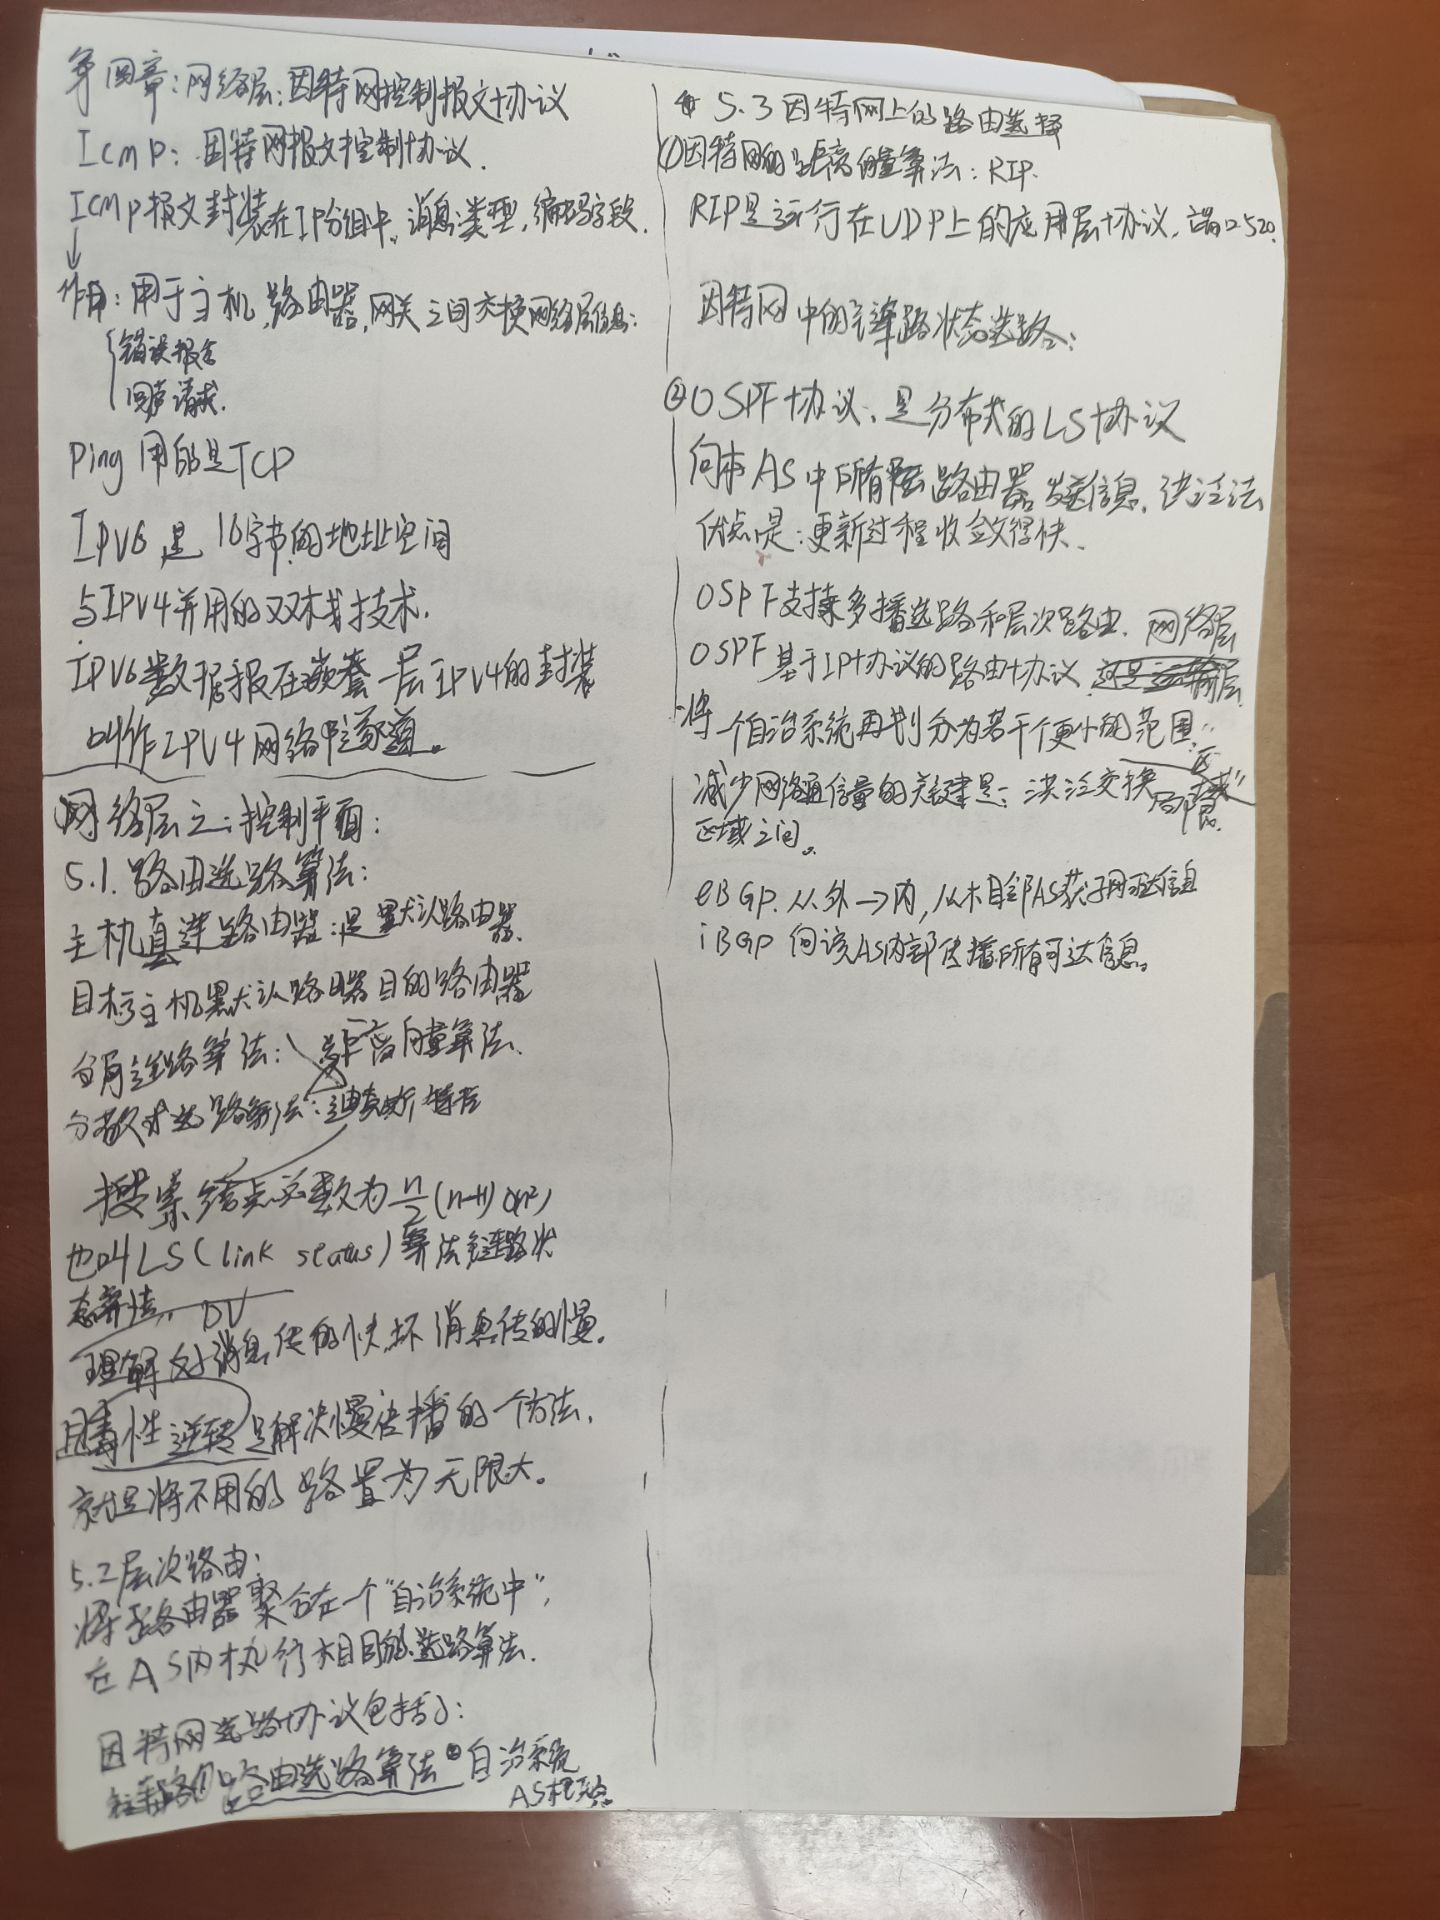 第四章:网络层:因特网控制报文协议
Icmp:因特网报文控制协议.
ICmp报文封装在IP分组中,消息类型,编码字段.
作用:用于主机,路由器,网关之间交换网络层信息:
错误报告
回声请求.
Ping 用的是TCP
IPV6是 16字节的地址空间
与IPV4并用的双栈技术.
IPV6数据报在嵌套一层IPV4的封装
叫作IPV4网络中隧道。
网络层之:控制平面:
5.1.路由选路算法:
主机直连路由器:是默认路由器.
目标主机默认路由器目的路由器
全局选路算法:距离向量算法.
分散式选路算法:迪克斯特拉
搜索结点总数为n/2(n+1) O(n²)
也叫LS(link status)算法链路状
态算法. DV
理解 好消息传的快.坏消息传的慢.
且毒性逆转是解决慢传播的一个方法,
就是将不用的路置为无限大。
5.2层次路由:
将路由器聚合在一个"自治系统中",
在AS内执行相同的选路算法.
因特网选路协议包括了:
路由选路算法 ② 自治系统
AS概念
5.3因特网上的路由选择
①因特网的距离向量算法:RIP.
RIP是运行在UDP上的应用层协议,端口520.
因特网中的链路状态选路:
②OSPF协议,是分布式的LS协议
向本AS中所有路由器发送信息,洪泛法
优点是:更新过程收敛得快.
OSPF支持多播选路和层次路由. 网络层
OSPF基于IP协议的路由协议
将一个自治系统再划分为若干个更小的范围:
区域"
减少网络通信量的关键是:洪泛交换局限
区域之间。
eBGP.从外→内,从相邻AS获子网可达信息
iBGP 向该AS内部传播所有可达信息。